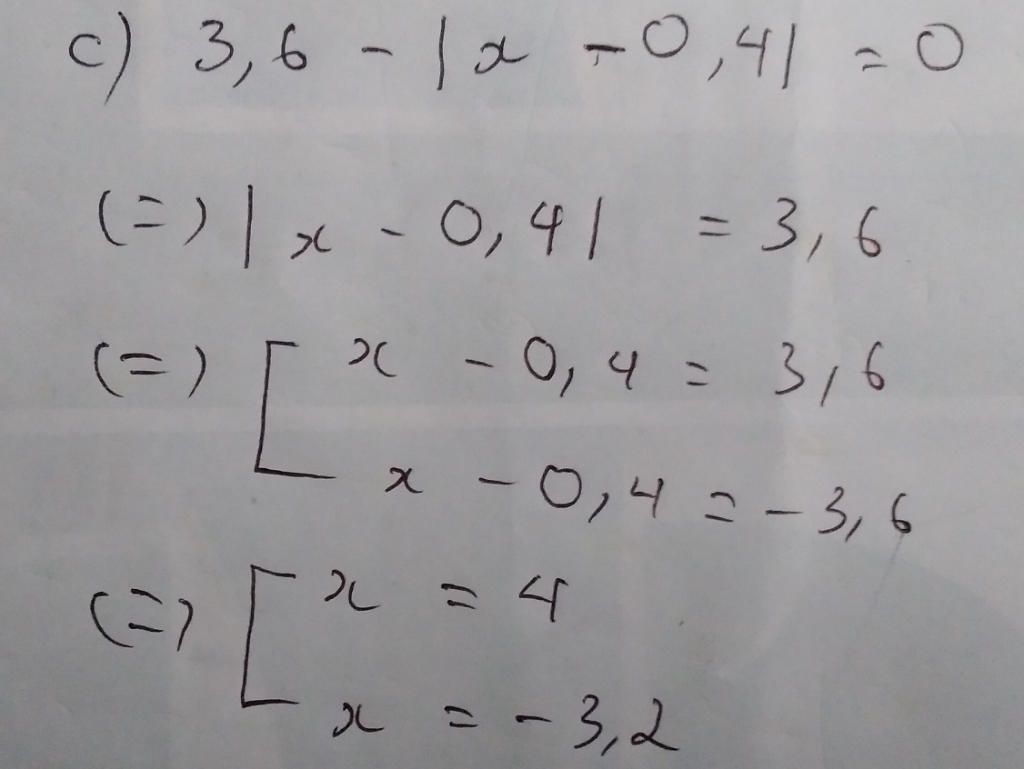 c) 3,6 - |x - 0,4| = 0
(=) |x - 0,4| = 3,6
(=) [ x - 0,4 = 3,6
x - 0,4 = -3,6
(=) [ x = 4
x = -3,2